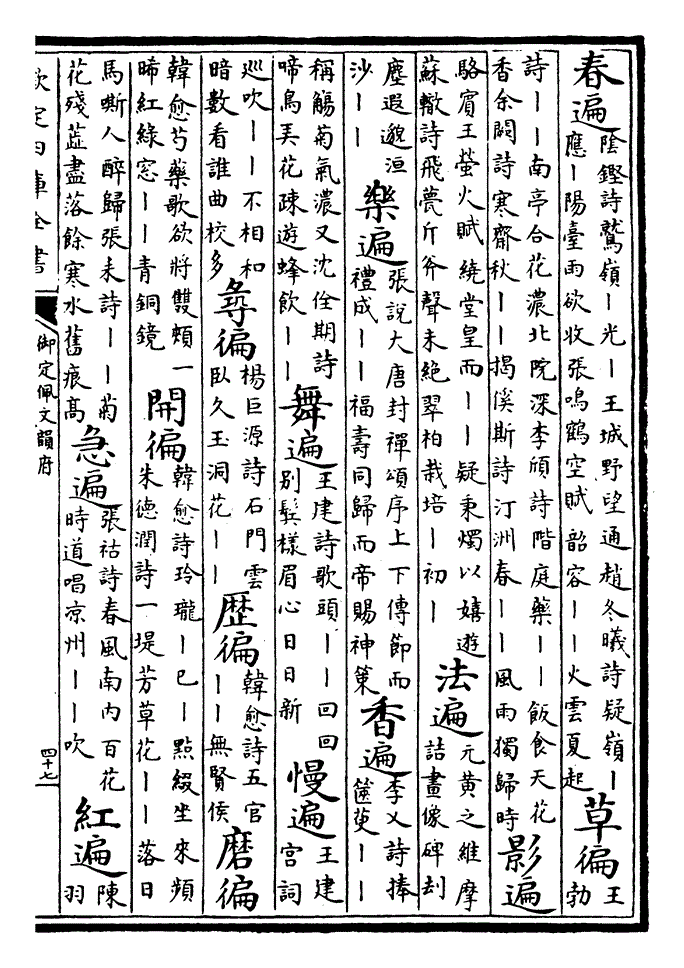 春遍
陰鏗詩鷲嶺｜光｜王城野望通趙冬曦詩疑嶺｜
應｜陽臺雨欲收張鳴鶴空賦韶容｜｜火雲夏起
草徧
王
勃
詩｜｜南亭合花濃北院深李頎詩階庭藥｜｜飯食天花
香余闕詩寒齋秋｜｜揭傒斯詩汀洲春｜｜風雨獨歸時
影遍
駱賓王螢火賦繞堂皇而｜｜疑秉燭以嬉遊
蘇轍詩飛甍斤斧聲未絶翠柏栽培｜初｜
法遍
元黄之維摩
詰畫像碑刦
塵遐邈洹
沙｜｜
樂遍
張說大唐封禪頌序上下傳節而
禮成｜｜福壽同歸而帝賜神策
香遍
李乂詩捧
篋萸｜｜
稱觴菊氣濃又沈佺期詩
啼鳥弄花疎遊蜂飲｜｜
舞遍
王建詩歌頭｜｜回回
别鬢樣眉心日日新
慢遍
王建
宫詞
巡吹｜｜不相和
暗數看誰曲校多
尋徧
楊巨源詩石門雲
臥久玉洞花｜｜
歴徧
韓愈詩五官
｜｜無賢侯
磨徧
韓愈芍藥歌欲將雙頰一
晞紅緑窓｜｜青銅鏡
開徧
韓愈詩玲瓏｜已｜點綴坐來頻
朱德潤詩一堤芳草花｜｜落日
馬嘶人醉歸張耒詩｜｜菊
花殘蕋盡落餘寒水舊痕高
急遍
張祜詩春風南内百花
時道唱凉州｜｜吹
紅遍
陳
羽
欽定四庫全書
御定佩文韻府
四十七